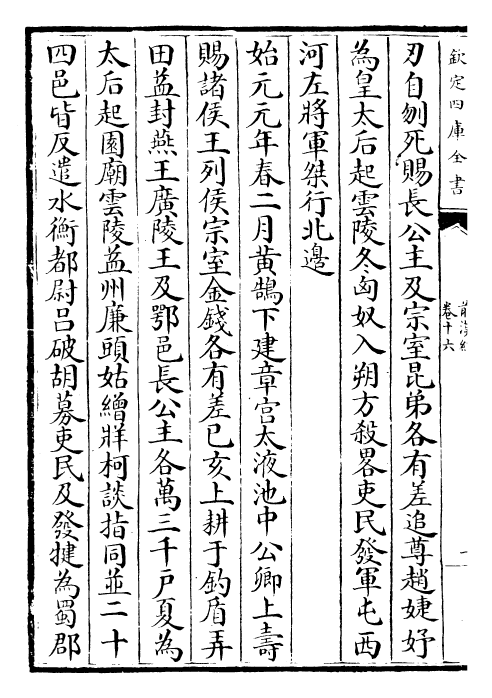 欽定四庫全書
前漢紀
卷十六
刃自刎死賜長公主及宗室昆弟各有差追尊趙婕妤
為皇太后起雲陵冬匈奴入朔方殺畧吏民發軍屯西
河左將軍桀行北邊
始元元年春二月黄鵠下建章宫太液池中公卿上壽
賜諸侯王列侯宗室金錢各有差已亥上耕于鈎盾弄
田益封燕王廣陵王及鄂邑長公主各萬三千户夏為
太后起園廟雲陵益州廉頭姑繒牂柯談指同並二十
四邑皆反遣水衡都尉吕破胡募吏民及發犍為蜀郡